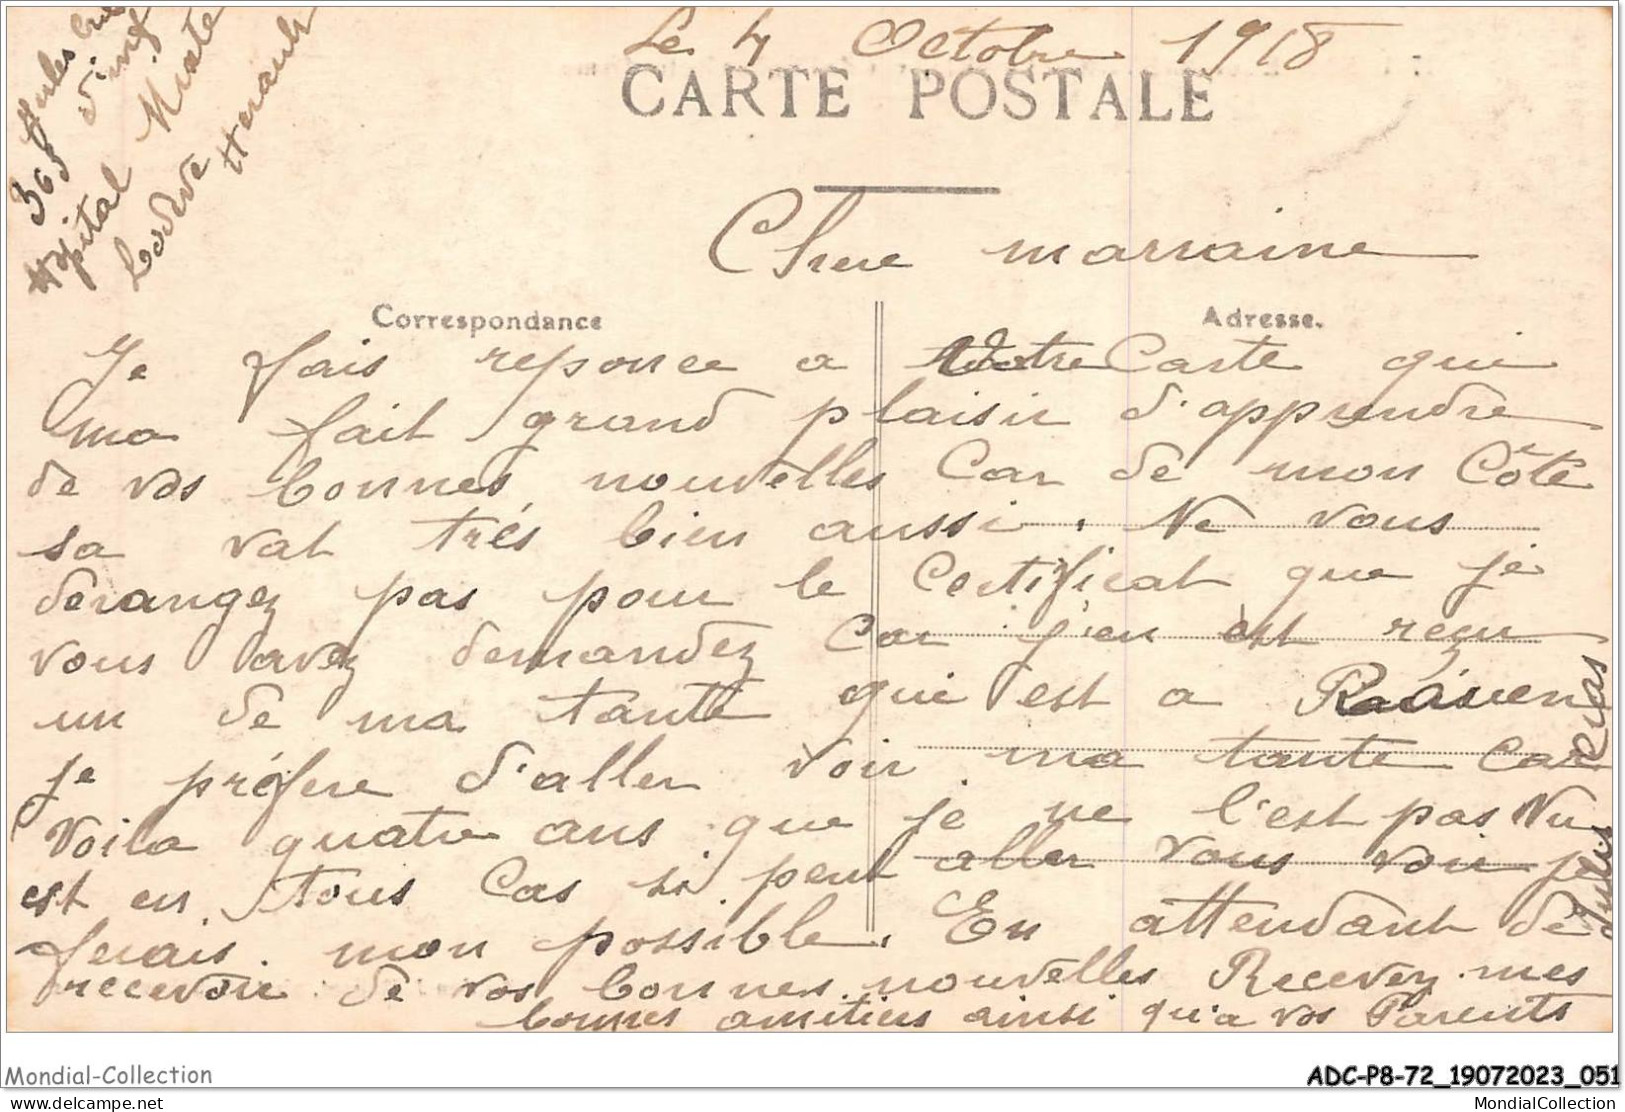 Le 4 Octobre 1918
CARTE POSTALE
365
Hôpital Mixte
Lodève Herault
Chere marraine
Correspondance
Adresse.
Je fais reponce a Votre Carte qui
ma fait grand plaisir d'apprendre
de vos bonnes nouvelles Car de mon Côté
sa vat trés bien aussi. Ne vous
derangez pas pour le Certificat que je
vous avez demandez Car j'en est reçu
un de ma tante qui est a
je préfere d'aller voir ma tante Car
Voila quatre ans que je ne l'est pas Vu
est en tous Cas si peut aller vous voir je
ferais mon possible. En attendant de
recevoir de vos bonnes nouvelles Recevez mes
bonnes amitiers ainsi qu'a vos Parents
Jules
Mondial-Collection
ADC-P8-72_19072023_051
mondial-collection.delcampe.net
MondialCollection